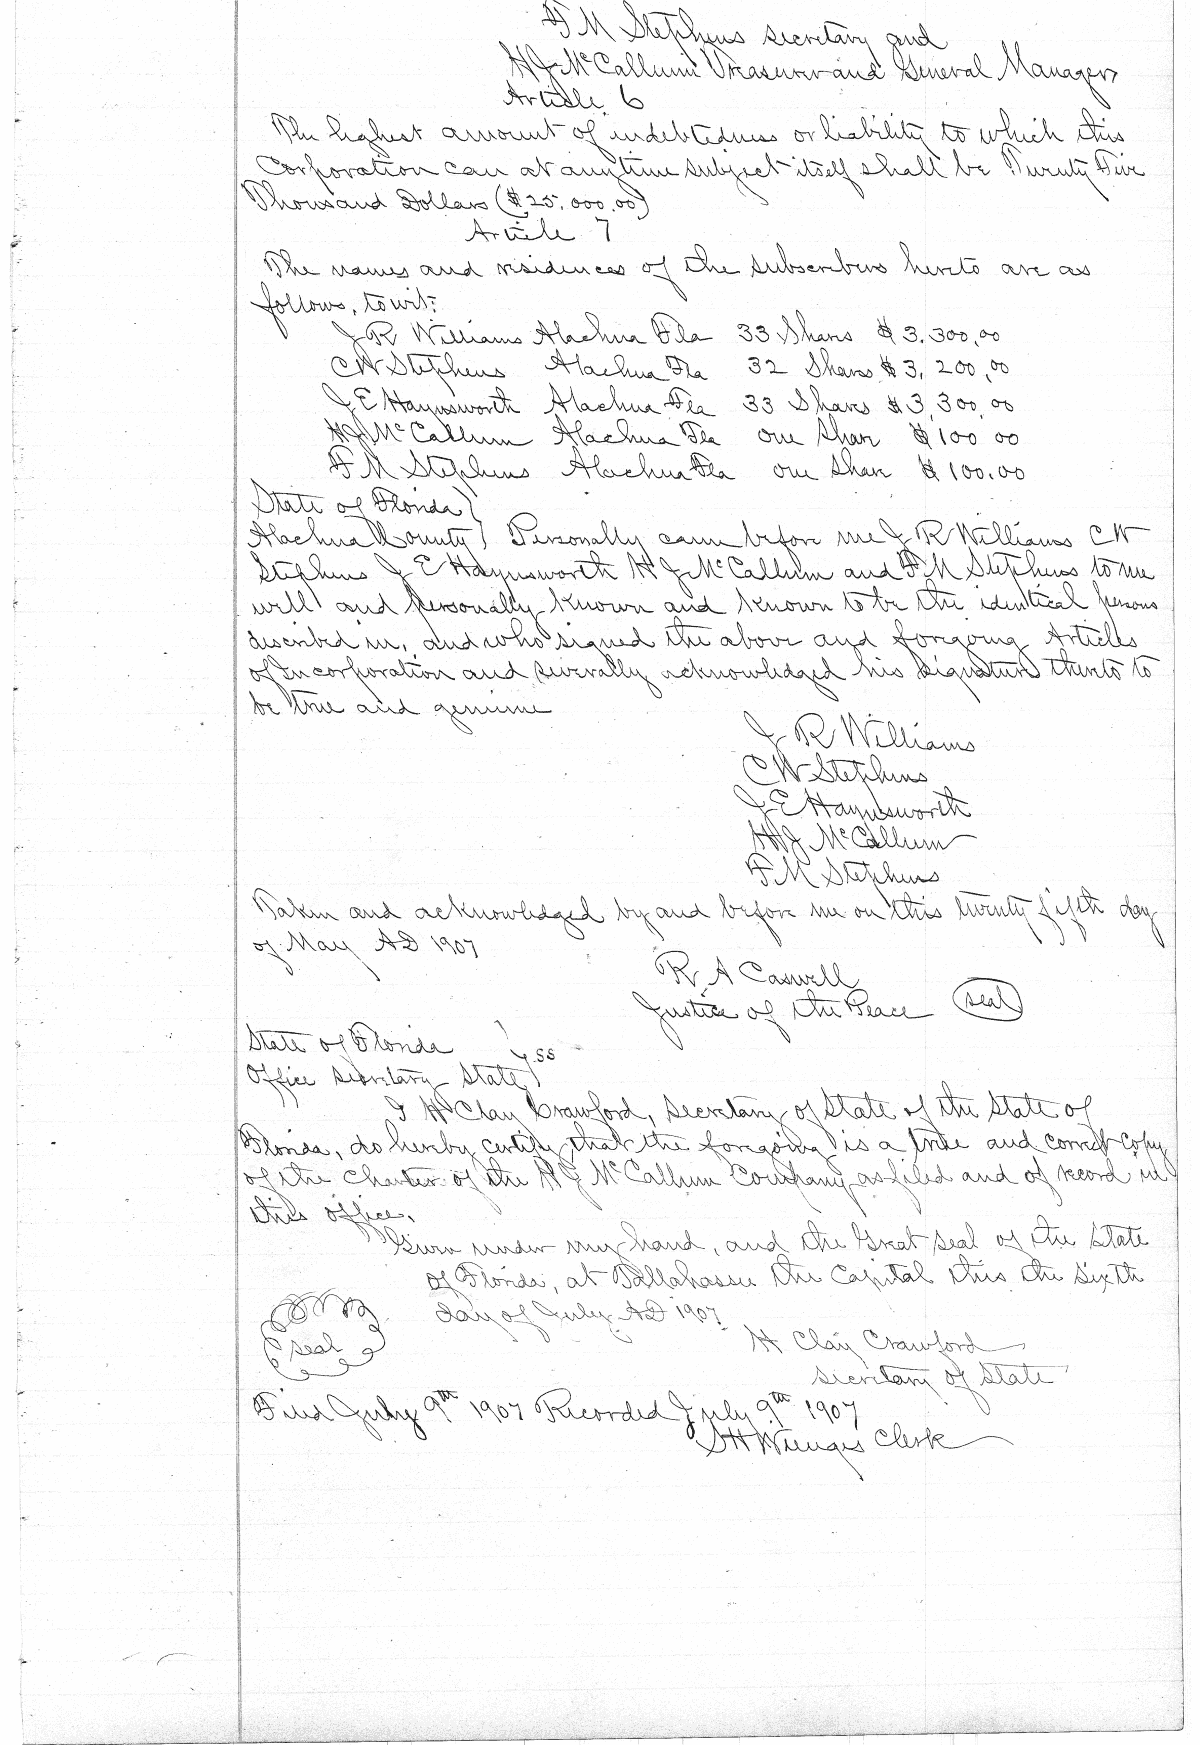 F M Stephens secretary and
H J McCallum Treasurer and General Manager
Article 6
The highest amount of indebtedness or liability to which this
Corporation can at any time subject itself shall be Twenty Five
Thousand Dollars ($25,000.00)
Article 7
The names and residences of the subscribers hereto are as
follows, towit:
J R Williams Alachua Fla 33 Shares $3,300.00
C W Stephens Alachua Fla 32 Shares $3,200.00
J E Haynsworth Alachua Fla 33 Shares $3,300.00
H J McCallum Alachua Fla one share $100 00
F M Stephens Alachua Fla one share $100.00
State of Florida)
Alachua County) Personally came before me J R Williams C W
Stephens J E Haynsworth H J McCallum and F M Stephens to me
well and personally known and known to be the identical persons
discribed in, and who signed the above and forgoing Articles
of Incorporation and severally acknowledged his signature thereto to
be true and genuine
J R Williams
C W Stephens
J E Haynsworth
H J McCallum
F M Stephens
Taken and acknowledged by and before me on this twenty fifth day
of May AD 1907
R A Caswell
Justice of the Peace (seal)
State of Florida )
Office Secretary State ) ss
I H Clay Crawford, Secretary of State of the State of
Florida, do hereby certify that the forgoing is a true and correct copy
of the Charter of the H J McCallum Company as filed and of record in
this office.
Given under my hand, and the Great Seal of the State
of Florida, at Tallahassee the Capital this the sixth
day of July AD 1907
seal
H Clay Crawford
Secretary of State
Filed July 9th 1907 Recorded July 9th 1907
S H Wienges Clerk